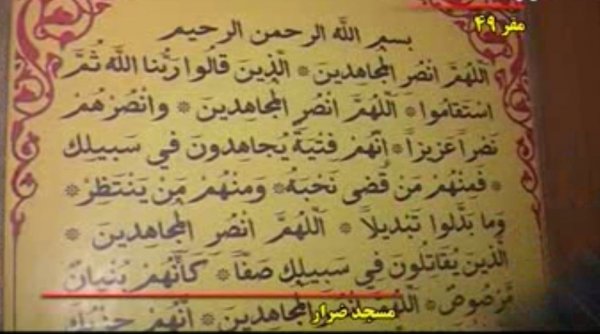 مقر ۴۹
بسم الله الرحمن الرحیم
اَللّهُمَّ انْصُرِ المُجاهدینَ * اَلَّذینَ قالُوا رَبُّنا اللهُ ثُمَّ
اسْتَقامُوا * اَللّهُمَّ انْصُرِ المُجاهدینَ * وانْصُرْهُمْ
نَصْراً عَزیزاً * اِنَّهُمْ فِتْیَةٌ یُجاهِدُونَ فی سَبیلِكَ
* فَمِنْهُمْ مَنْ قَضی نَحْبَهُ * وَمِنْهُمْ مَنْ یَنْتَظِرُ *
وَما بَدَّلُوا تَبْدیلاً * اَللّهُمَّ انْصُرِ المُجاهدینَ *
الَّذینَ یُقاتِلُونَ فی سَبیلِكَ صَفّاً * كَاَنَّهُمْ بُنْیانٌ
مَرْصُوصٌ * اَللّهُمَّ انْصُرِ المُجاهدینَ * اِنَّهُمْ
مسجد ضرار